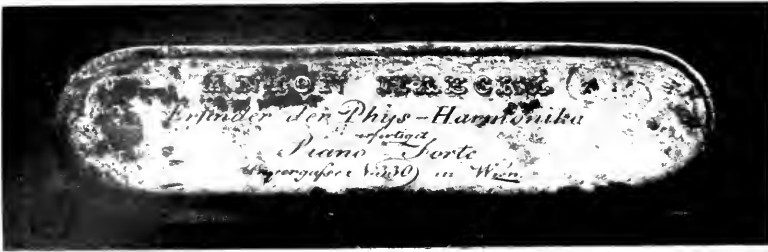 ANTON HAECKL
Erfinder der Phys-Harmonika
verfertigt
Piano-Forte
No 330) in Wien.